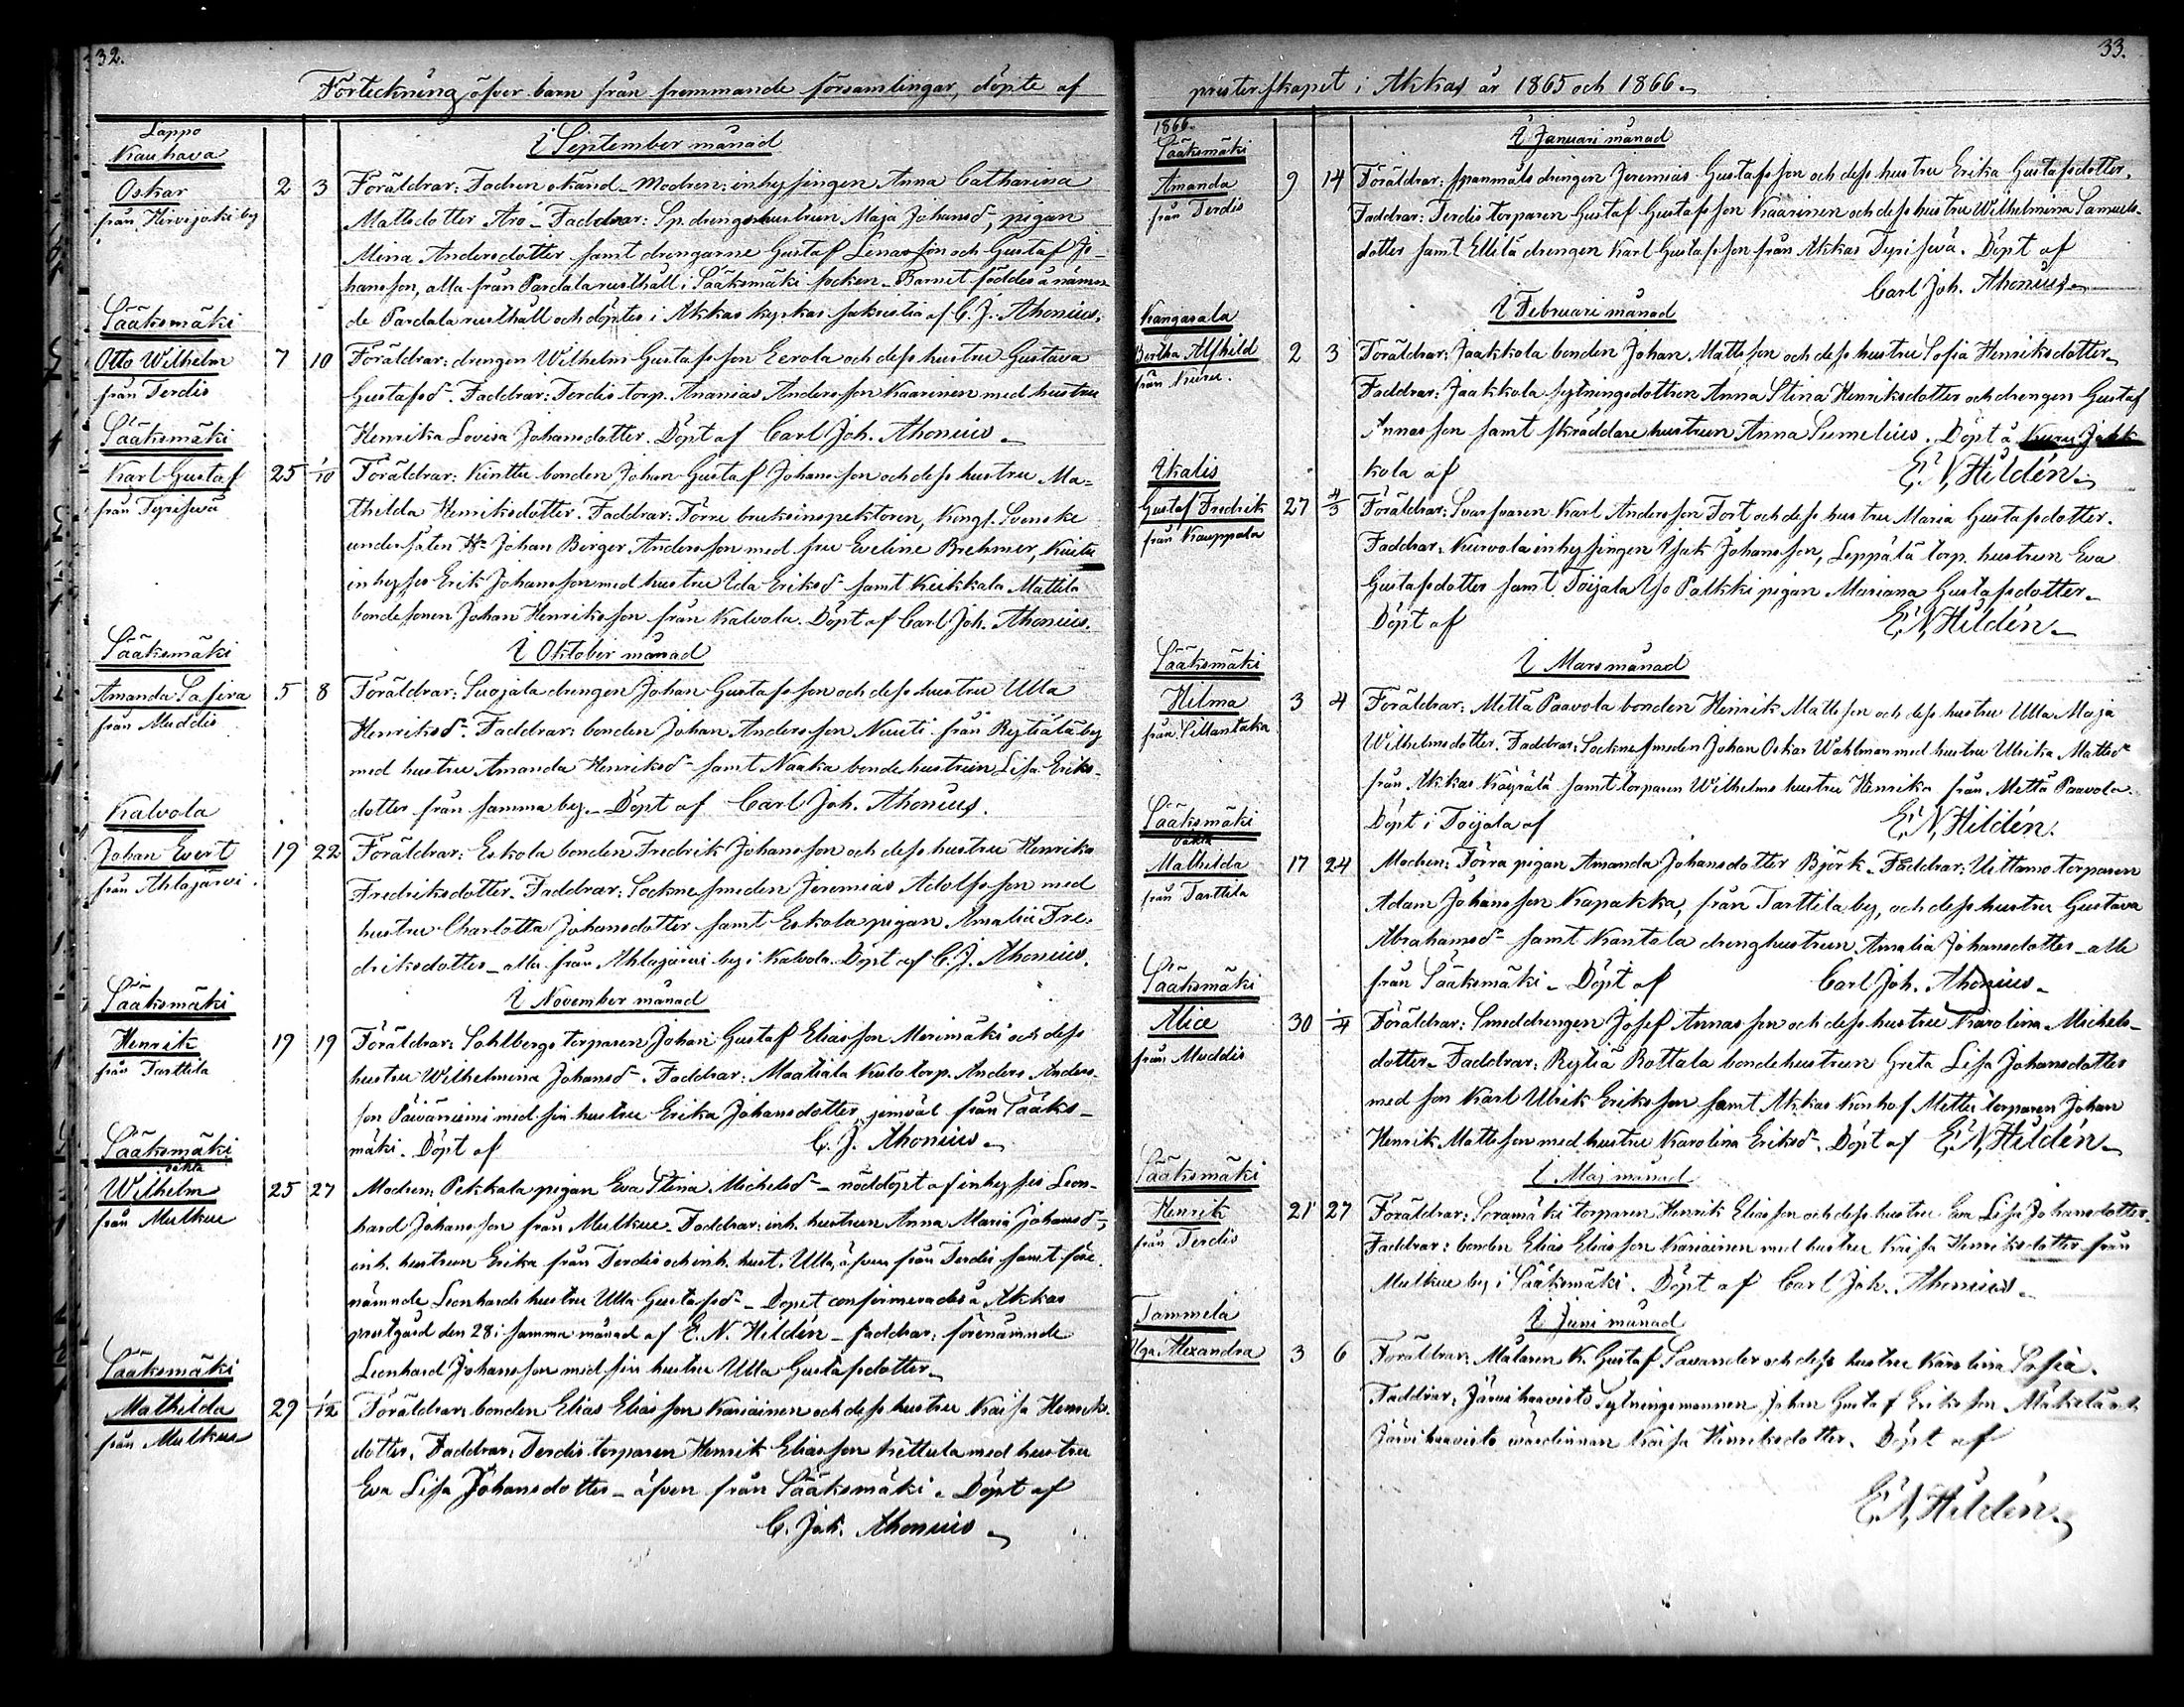 32.
Förteckning öfver barn från fremmande församlingar, döpte af
Lappo
Kauhava
I September månad
Oskar 2 3 Föräldrar: Fadren okänd – Modren: inhysingen Anna Catharina
från Hirvijoki by
Mattsdotter Aro – Faddrar: Sp. drengshustrun Maja Johansdr, pigan
Mina Andersdotter samt drengarne Gustaf Enasson och Gustaf Jo-
hansson, alla från Pardala rusthåll i Sääksmäki socken – Barnet föddes å nämn-
de Pardala rusthåll och döptes i Akkas kyrkas sakristia af C. J. Ahonius.
Sääksmäki
Otto Wilhelm 7 10 Föräldrar: drengen Wilhelm Gustafsson Eerola och dess hustru Gustava
från Terdis
Gustafsdr. Faddrar: Terdis torp. Ananias Andersson Kaarinen med hustru
Henrika Lovisa Johansdotter. Döpt af Carl Joh. Ahonius.
Sääksmäki
Karl Gustaf 25 1/10 Föräldrar: Kinttu bonden Johan Gustaf Johansson och dess hustru Ma-
från Tyrisevä
thilda Henriksdotter. Faddrar: Förre bruksinspektoren, Kongl. Svenske
undersåten Hr Johan Birger Andersson med fru Eveline Brehmer,
inhyses Erik Johansson med hustru Ida Eriksdr samt Keikkala Mattila
bondesonen Johan Henriksson från Kalvola. Döpt af Carl Joh. Ahonius.
I Oktober månad
Sääksmäki
Amanda Safira 5 8 Föräldrar: Suojala drengen Johan Gustafsson och dess hustru Ulla
från Muddis
Henriksdr. Faddrar: bonden Johan Andersson Nuuti från Rytiälä by
med hustru Amanda Henriksdr samt Naaka bondehustrun Lisa Eriks-
dotter från samma by. – Döpt af Carl Joh. Ahonius.
Kalvola
Johan Evert 19 22 Föräldrar: Eskola bonden Fredrik Johansson och dess hustru Henrika
från Ahlajärvi
Fredriksdotter. Faddrar: Sockne smeden Jeremias Adolfsson med
hustru Charlotta Johansdotter samt Eskola pigan Amalia Fre-
driksdotter – alla från Ahlajärvi by i Kalvola. Döpt af C. J. Ahonius.
I November månad
Sääksmäki
Henrik 19 19 Föräldrar: Sahlbergs torparen Johan Gustaf Eliasson Merimäki och dess
från Tarttila
hustru Wilhelmina Johansdr. Faddrar: Maatiala Kusto torp. Anders Anders-
son Päivänieini med sin hustru Erika Johansdotter, jemväl från Sääks-
mäki. Döpt af C. J. Ahonius.
Sääksmäki
oäkta
Wilhelm 25 27 Modren: Pekkala pigan Eva Stina Michelsdr – nöddöpt af inhyses Leon-
från Mulkue
hard Johansson från Mulkue. Faddrar: inh. hustrun Anna Maria Johansdr,
inh. hustrun Erika från Terdis och inh. hust. Ulla, äfven från Terdis samt före-
nämnde Leonhards hustru Ulla Gustafsdr – Dopet confirmerades å Akkas
prestgård den 28 i samma månad af E. N. Hildén – faddrar: förenämnde
Leonhard Johansson med sin hustru Ulla Gustafsdotter.
Sääksmäki
Mathilda 29 1/12 Föräldrar: bonden Elias Eliasson Kariainen och dess hustru Kaisa Henriks-
från Mulkue
dotter. Faddrar: Terdis torparen Henrik Eliasson Kettula med hustru
Eva Lisa Johansdotter – äfven från Sääksmäki. Döpt af
C. Joh. Ahonius
33.
presterskapet i Akkas år 1865 och 1866.
1866.
I Januari månad
Sääksmäki
Amanda 9 14 Föräldrar: spanmåls drengen Jeremias Gustafsson och dess hustru Erika Gustafsdotter.
från Terdis
Faddrar: Terdis torparen Gustaf Gustafsson Kaarinen och dess hustru Wilhelmina Samuels-
dotter samt Ellilä drengen Karl Gustafsson från Akkas Tyrisevä. Döpt af
Carl Joh. Ahonius
I Februari månad
Kangasala
Bertha Alfhild 2 3 Föräldrar: Jaakkola bonden Johan Mattsson och dess hustru Sofia Henriksdotter.
från Kuru.
Faddrar: Jaakkola sytningsdottren Anna Stina Henriksdotter och drengen Gustaf
Annasson samt skräddare hustrun Anna Sumelius. Döpt å Jakk
kola af E. N. Hildén.
Ikalis
Gustaf Fredrik 27 4/3 Föräldrar: Svarfvaren Karl Andersson Fort och dess hustru Maria Gustafsdotter.
från Kauppala
Faddrar: Kurvola inhysingen Isak Johansson, Leppälä torp. hustrun Eva
Gustafsdotter samt Toijala Iso Palkki pigan Mariana Gustafsdotter.
Döpt af E. N. Hildén.
I Mars månad
Sääksmäki
Hilma 3 4 Föräldrar: Mettä Paavola bonden Henrik Mattsson och dess hustru Ulla Maja
från Sillantaka
Wilhelmsdotter. Faddrar: Socknesmeden Johan Oskar Wahlman med hustru Ulrika Mattsdr
från Akkas Käyrälä samt torparen Wilhelms hustru Henrika från Mettä Paavola.
Döpt i Toijala af E. N. Hildén.
Sääksmäki
oäkta
Mathilda 17 24 Modren: Förra pigan Amanda Johansdotter Björk. Faddrar: Uittamo torparen
från Tarttila
Adam Johansson Kapakka, från Tarttila by, och dess hustru Gustava
Abrahamsdr samt Kantola drenghustrun Amalia Johansdotter – alla
från Sääksmäki – Döpt af Carl Joh. Ahonius.
Sääksmäki
Alice 30 1/4 Föräldrar: Smeddrengen Josef Annasson och dess hustru Karolina Michels-
från Muddis
dotter. Faddrar: Rytiä Rottala bondehustrun Greta Lisa Johansdotter
med son Karl Ulrik Eriksson samt Akkas Konhof Metter torparen Johan
Henrik Mattsson med hustru Karolina Eriksdr. Döpt af E. N. Hildén
I Maj månad
Sääksmäki
Henrik 21 27 Föräldrar: Soramäki torparen Henrik Eliasson och dess hustru Eva Lisa Johansdotter.
från Terdis
Faddrar: bonden Elias Eliasson Kariainen med hustru Kaisa Henriksdotter från
Mulkue by i Sääksmäki. Döpt af Carl Joh. Ahonius.
I Juni månad
Tammela
Olga Alexandra 3 6 Föräldrar: Målaren K. Gustaf Savander och dess hustru Karolina Sofia.
Faddrar: Järvihaavisto Sytningsmannen Johan Gustaf Eriksson Mäkelä och
Järvihaavisto värdinnan Kaisa Henriksdotter. Döpt af
E. N. Hildén